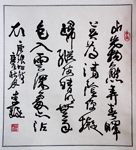 山光物態弄春暉
莫為輕陰便擬
歸縱使晴明無雨
色入雲深處亦沾
衣